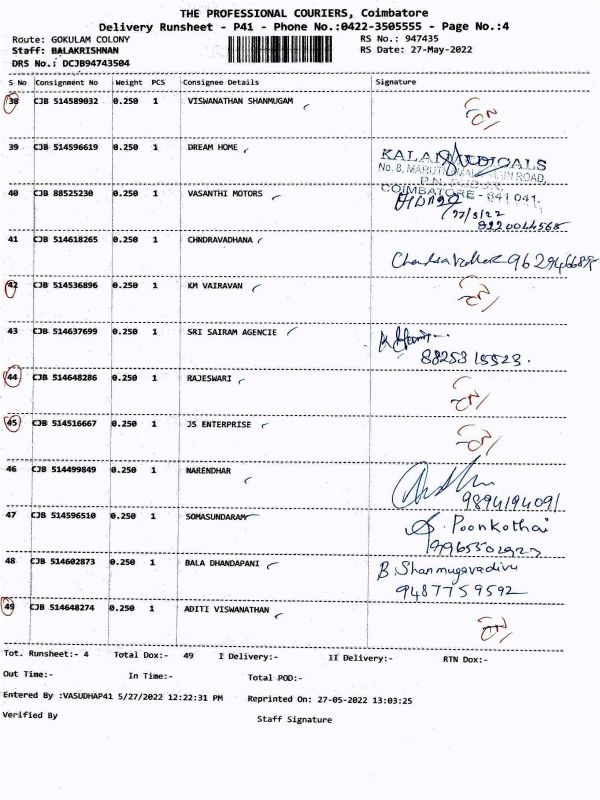 THE PROFESSIONAL COURIERS, Coimbatore
Delivery Runsheet - P41 - Phone No.:0422-3505555 - Page No.:4
Route: GOKULAM COLONY RS No.: 947435
Staff: BALAKRISHNAN RS Date: 27-May-2022
DRS No.: DCJB94743504
S No Consignment No Weight PCS Consignee Details Signature
38 CJB 514589032 0.250 1 VISWANATHAN SHANMUGAM
39 CJB 514596619 0.250 1 DREAM HOME
KALAI MEDICALS
No. 8, ROAD,
COIMBATORE - 641 041.
40 CJB 88525230 0.250 1 VASANTHI MOTORS
27/5/22
8220044568
41 CJB 514618265 0.250 1 CHNDRAVADHANA
42 CJB 514536896 0.250 1 KM VAIRAVAN
43 CJB 514637699 0.250 1 SRI SAIRAM AGENCIE
8825315523.
44 CJB 514648286 0.250 1 RAJESWARI
45 CJB 514516667 0.250 1 JS ENTERPRISE
46 CJB 514499849 0.250 1 NARENDHAR
9894194091
47 CJB 514596510 0.250 1 SOMASUNDARAM Poonkothai
48 CJB 514602873 0.250 1 BALA DHANDAPANI B Shanmugavadivu
9487759592
49 CJB 514648274 0.250 1 ADITI VISWANATHAN
Tot. Runsheet:- 4 Total Dox:- 49 I Delivery:- II Delivery:- RTN Dox:-
Out Time:- In Time:- Total POD:-
Entered By :VASUDHAP41 5/27/2022 12:22:31 PM Reprinted On: 27-05-2022 13:03:25
Verified By Staff Signature